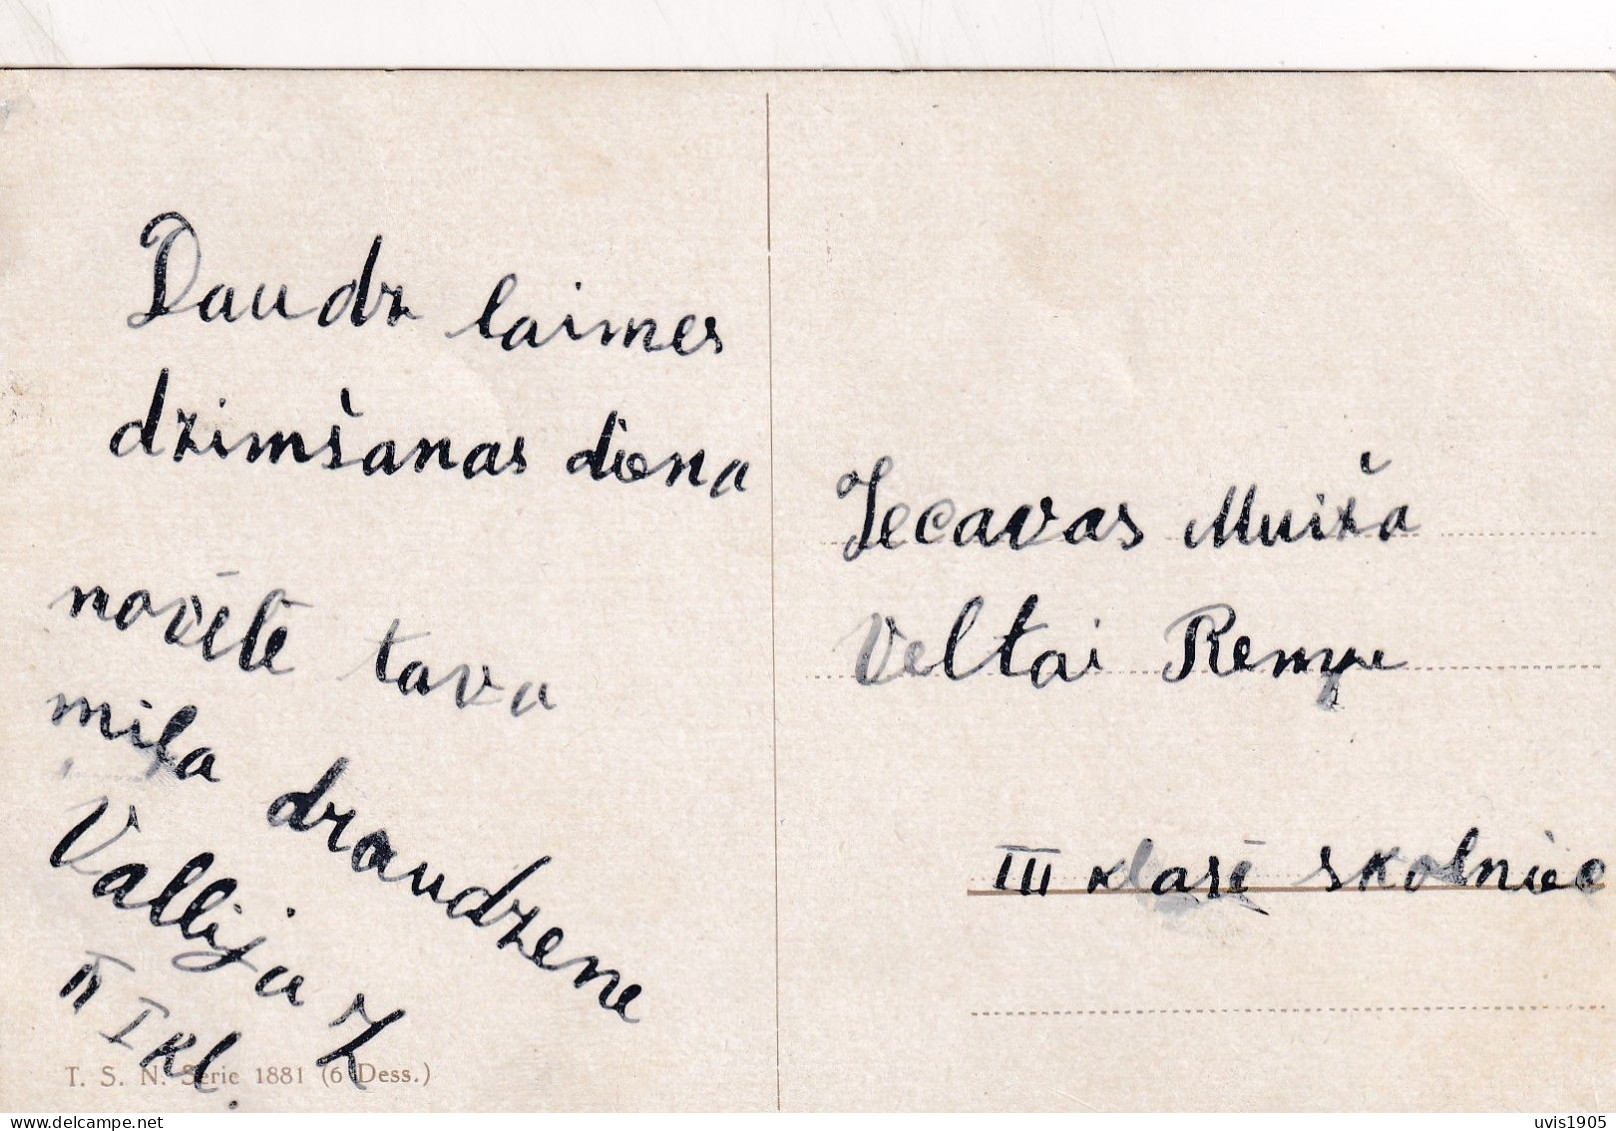 Daudz laimes
dzimšanas diena
novēlē tava
mila draudzene
Vallija Z
III kl.
T. S. N. Serie 1881 (6 Dess.)
Jecavas Muiža
Veltai Rempe
III klasē skolniec
delcampe.net
uvis1905